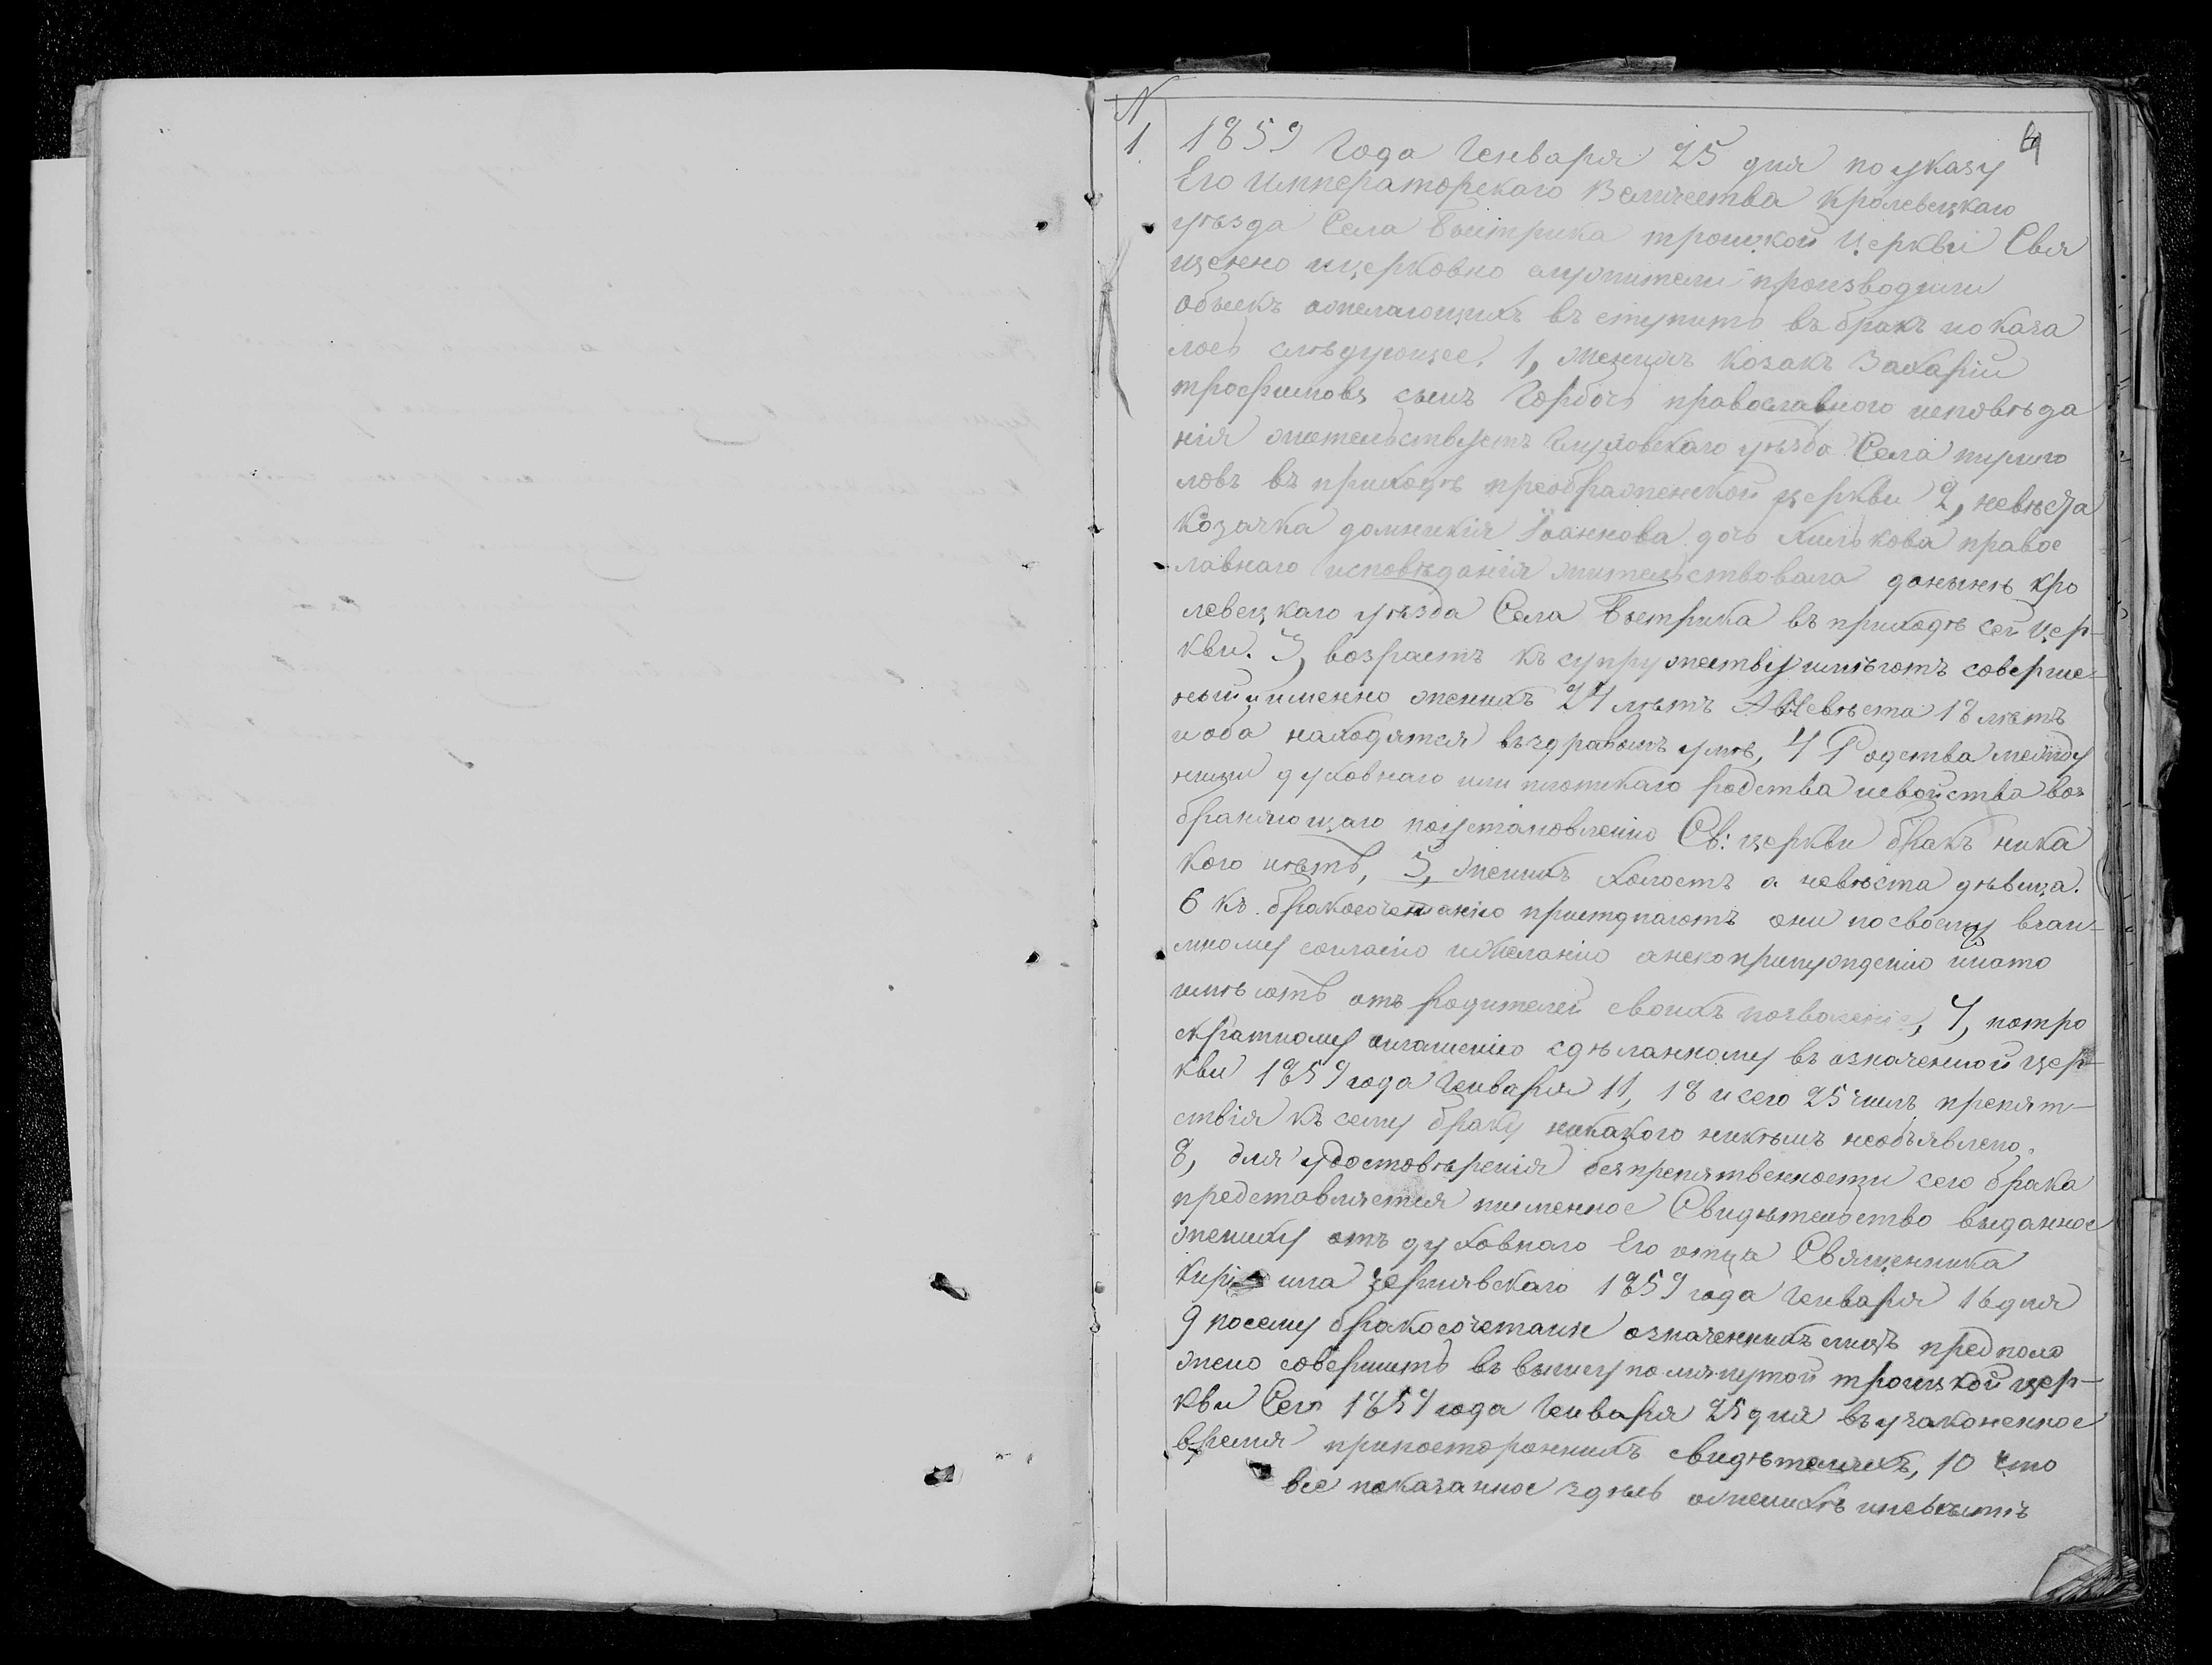 N
1. 1859 Года Генваря 25 дня по указу 4
Его Императорскаго Величества Кролевецкаго
уѣзда Села Быстрика троицкой Церкви Свя
щенно ицерковно служители производили
обыскъ ожелающихъ въ ступить въ бракъ ио каза
лось слѣдующее. 1, женихъ козакъ Захарій
трофимовъ сынъ Горбачь православного исповѣда
нія жительствуетъ Глуховскаго уѣзда Села пирого
ловъ въ приходѣ преображенской церкви 2, невѣста
Козачка домникія Іоаннова дочь Хилькова правос
лавнаго исповѣданія жительствовала донынѣ Кро
левецкаго уѣзда Села Быстрика въ приходѣ сей цер-
кви. 3, возрастъ къ супружеству имѣютъ соверше-
ный именно женихъ 24 лѣтъ А Невѣста 18 лѣтъ
и оба находятся въздравомъ умѣ, 4 Родства между
ними духовнаго или плотскаго родства исвойства воз
браняющаго поустановленію Св: церкви бракъ ника
кого нѣтъ, 5, женихъ холостъ а невѣста дѣвица.
6 къ. бракосочетанію приступаютъ они по своему взаи-
мному согласію ижеланію анекопринужденію инато
имѣютъ отъ родителей своихъ позволеніе, 7, потро
екратному оглашенію сдѣланному въ означенной цер-
кви 1859 года Генваря 11, 18 и сего 25 чилъ препят-
ствія къ сему браку никакого никѣмъ необъявлено.
8, для удостовѣренія безпрепятвенности сего брака
представляется писменное Свидѣтельство выданное
жениху отъ духовнаго Его отца Священника
1859 года Генваря 16 дня
9 посему бракосочетаніе означенныхъ лицъ предполо
жено совершить въ вышеупомянутой троицкой цер-
кви Сего 1859 года Генваря 25 дня въ узаконенное
время припостороннихъ свидѣтеляхъ, 10 что
все показанное здѣсь ожених ѣ иневѣстѣ